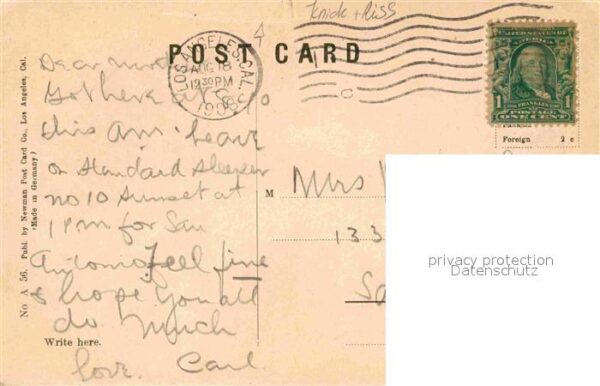 Knick + Riss
POST CARD
LOS ANGELES, CAL.
AUG 18
12 30 PM
1908
UNITED STATES OF
AMERICA
FRANKLIN
1 POSTAGE 1
ONE CENT
Foreign 2 c
No A 56. Publ. by Newman Post Card Co., Los Angeles, Cal.
(Made in Germany)
Dear
Got here
this Am. Leave
on Standard Sleeper
no 10 Sunset at
1 Pm for San
Antonio. Feel fine
& hope you all
do. Much
love. Carl
Write here.
M Mrs
133
Sa
privacy protection
Datenschutz